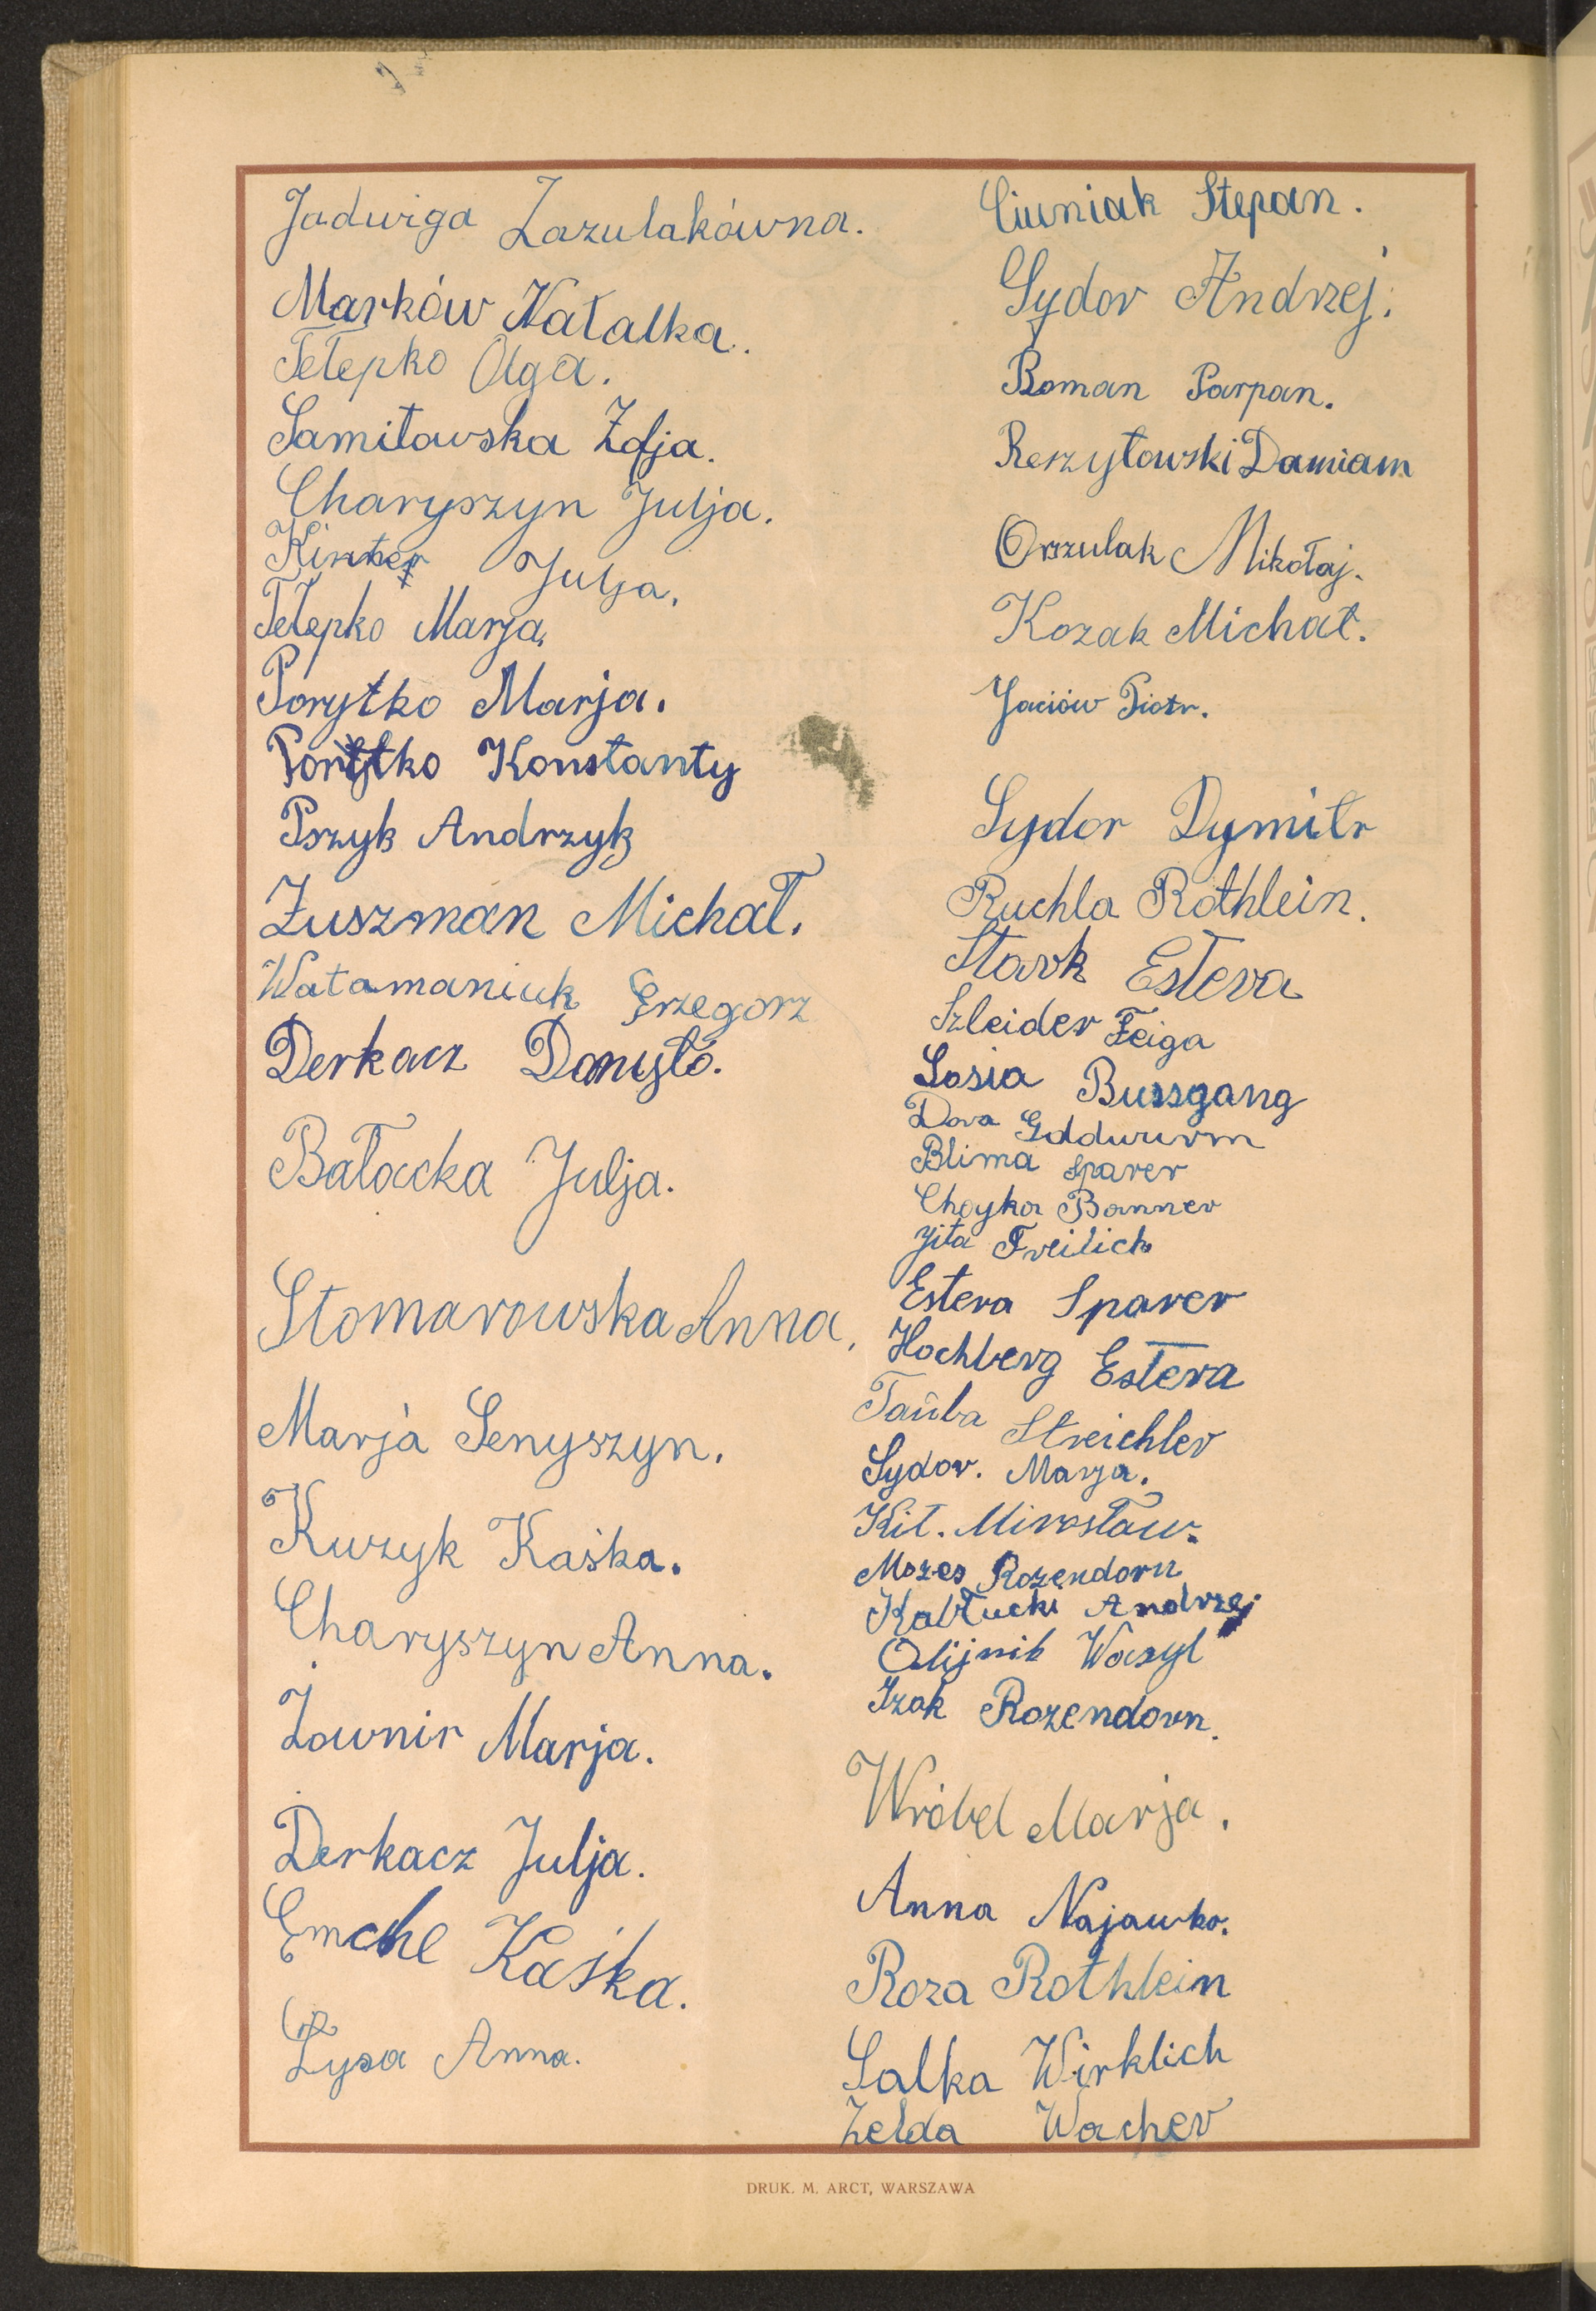 Jadwiga Zazulakówna.
Marków Natalka.
Tełepko Olga.
Samiłowska Zofja.
Charyszyn Julja.
Julja.
Tełepko Marja,
Porytko Marja.
Porytko Konstanty
Pszyk Andrzyk
Żuszman Michał.
Watamaniuk Grzegorz
Derkacz Danyło.
Bałacka Julja.
Stomarowska Anna,
Marja Senyszyn.
Kuzyk Kaśka.
Charyszyn Anna.
Żownir Marja.
Derkacz Julja.
Emche Kaśka.
Łysa Anna.
Ciuniak Stepan.
Sydor Andrzej.
Roman Parpan.
Reszytowski Damiam
Orszulak Mikołaj.
Kozak Michał.
Jaciów Piotr.
Sydor Dymitr
Ruchla Rothlein.
Stark Estera
Szleider Feiga
Sosia Bussgang
Dora Goldwurm
Blima Sparer
Chayka Banner
Jita Freilich
Estera Sparer
Hochberg Estera
Taŭba Streichler
Sydor. Marja.
Kit. Mirosław.
Mozes Rozendorn
Kabłucki Andrzej
Olijnik Wasyl
Izak Rozendorn.
Wróbel Marja.
Anna Najawko.
Roza Rothlein
Salka Wirklich
Zelda Wacher
DRUK. M. ARCT, WARSZAWA